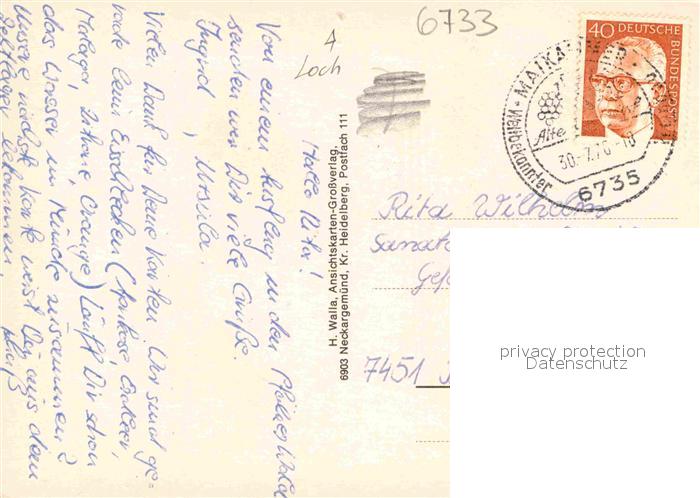 6733
4
Loch
40 DEUTSCHE BUNDESPOST
MAIKAMMER
Weitbekannter
Alte
30.-7.76-18
6735
Hallo Rita!
Von einem Ausflug in den Pfälzer Wald
senden wir Dir viele Grüße.
Ingrid, Ursula.
Vielen Dank für Deine Karten. Wir sind ge-
rade beim Eisschlecken (Aprikose, Erdbeer,
Malaga, Zitrone, Orange) Läuft Dir schon
das Wasser im Munde zusammen?
Unsere nächste Karte wirst Du aus dem
Zeltlager bekommen.
H. Walla, Ansichtskarten-Großverlag,
6903 Neckargemünd, Kr. Heidelberg, Postfach 111
Rita Wilhelm
7451
privacy protection
Datenschutz